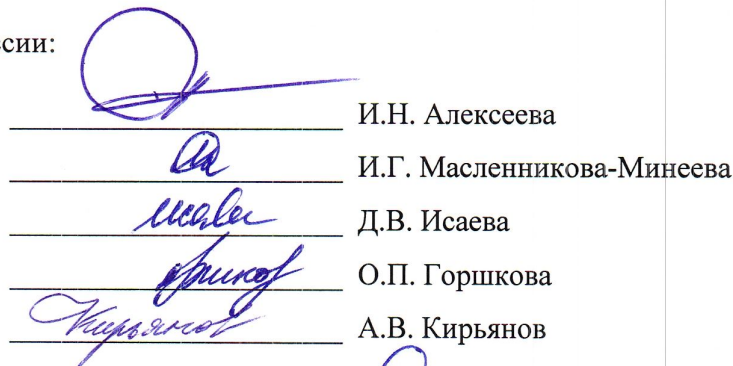 ссии:
И.Н. Алексеева
И.Г. Масленникова-Минеева
Д.В. Исаева
О.П. Горшкова
Кирьянов А.В. Кирьянов